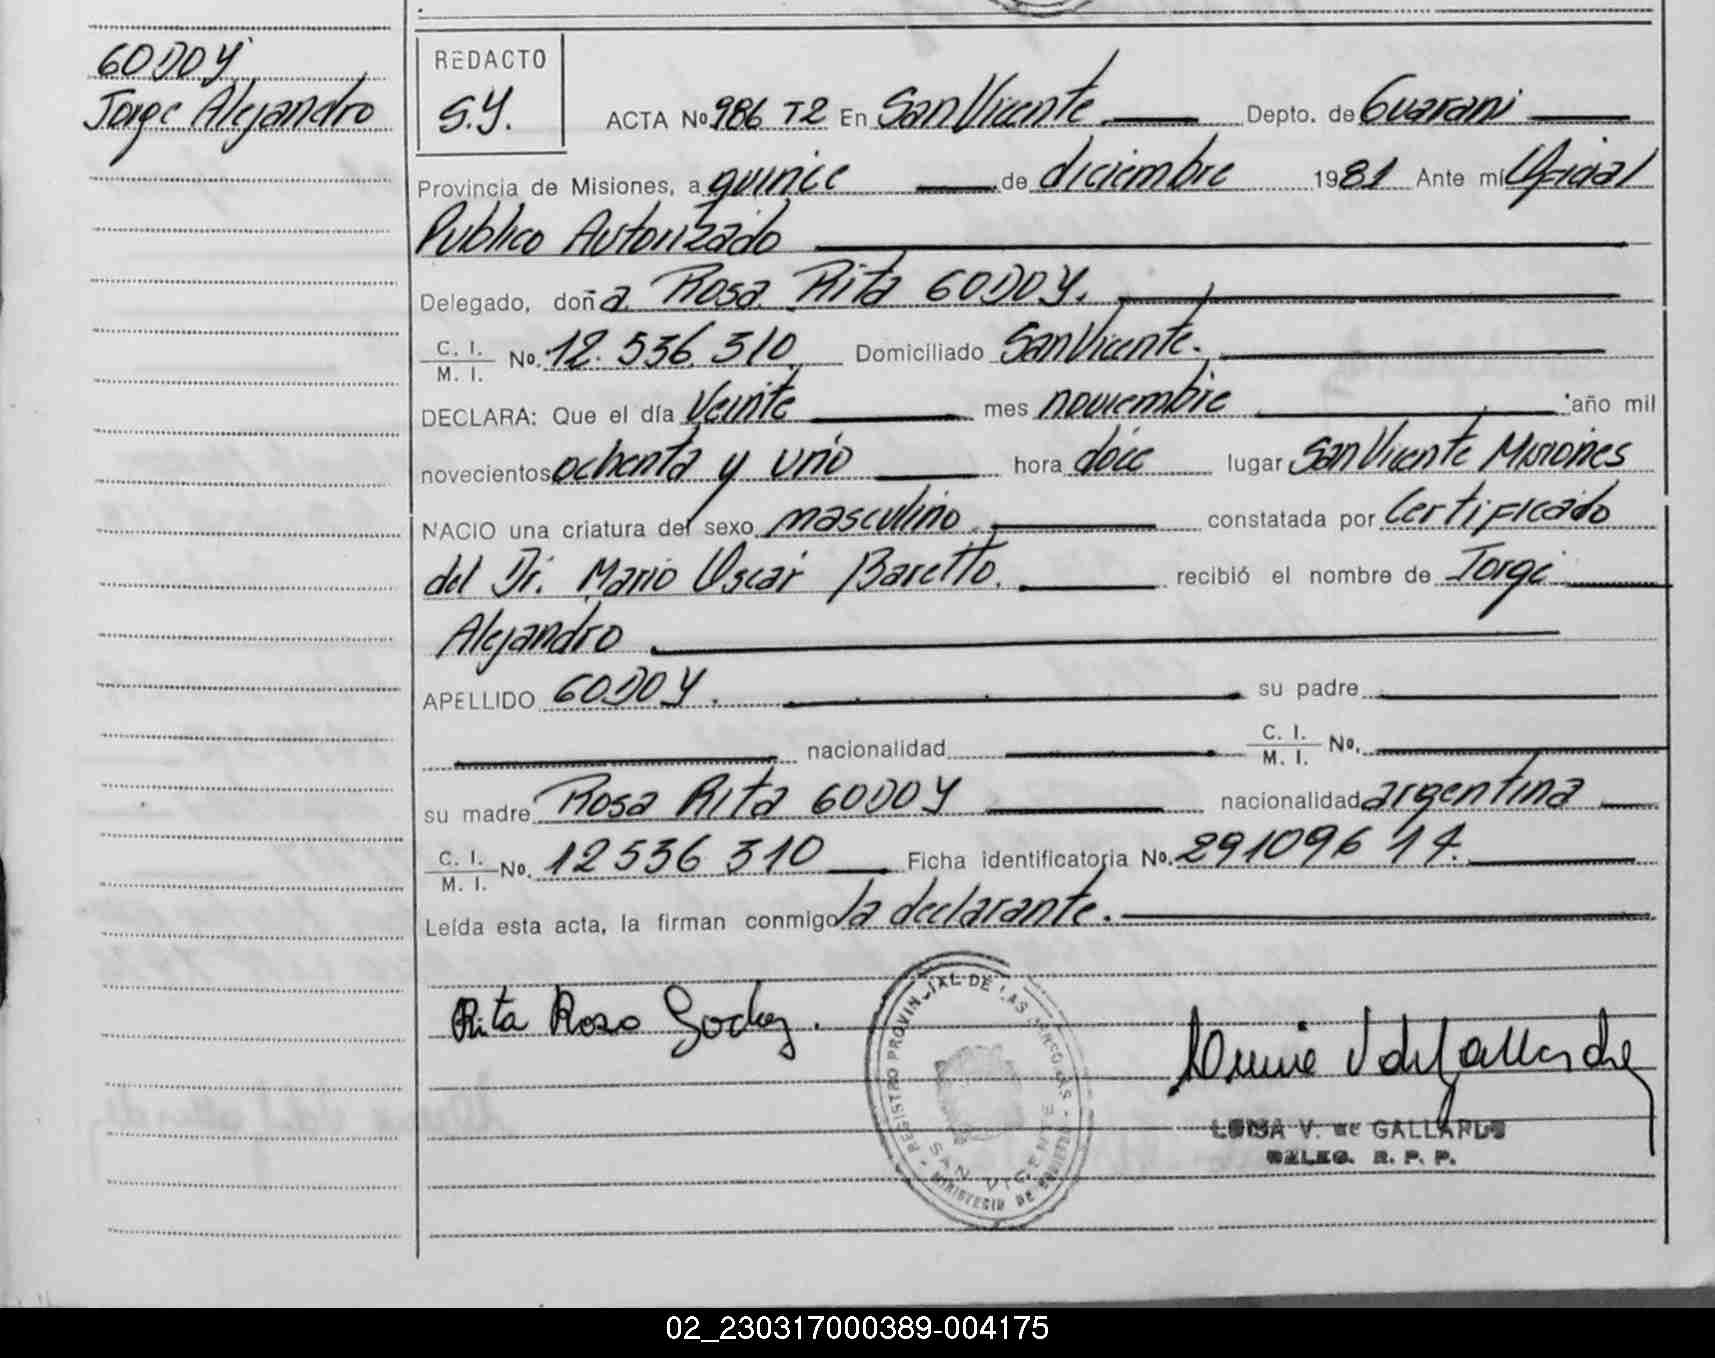 GODOY
Jorge Alejandro
REDACTO
S.Y.
ACTA No 986 T2 En San Vicente Depto. de Guarani
Provincia de Misiones, a quince de diciembre 1981 Ante mi Oficial
Publico Autorizado
Delegado, doña Rosa Rita GODOY.
C. I.
M. I. No. 12.536.310 Domiciliado San Vicente.
DECLARA: Que el día Veinte mes noviembre año mil
novecientos ochenta y uno hora doce lugar San Vicente Misiones
NACIO una criatura del sexo masculino constatada por Certificado
del Dr. Mario Oscar Baretto. recibió el nombre de Jorge
Alejandro
APELLIDO GODOY. su padre
nacionalidad C. I.
M. I. No.
su madre Rosa Rita GODOY nacionalidad argentina
C. I.
M. I. No. 12536310 Ficha identificatoria No. 291096 14.
Leída esta acta, la firman conmigo la declarante.
Rita Rosa Godoy.
REGISTRO PROVINCIAL DE LAS PERSONAS - MINISTERIO DE GOBIERNO
SAN VICENTE
LUISA V. de GALLARDO
DELEG. R. P. P.
02_230317000389-004175